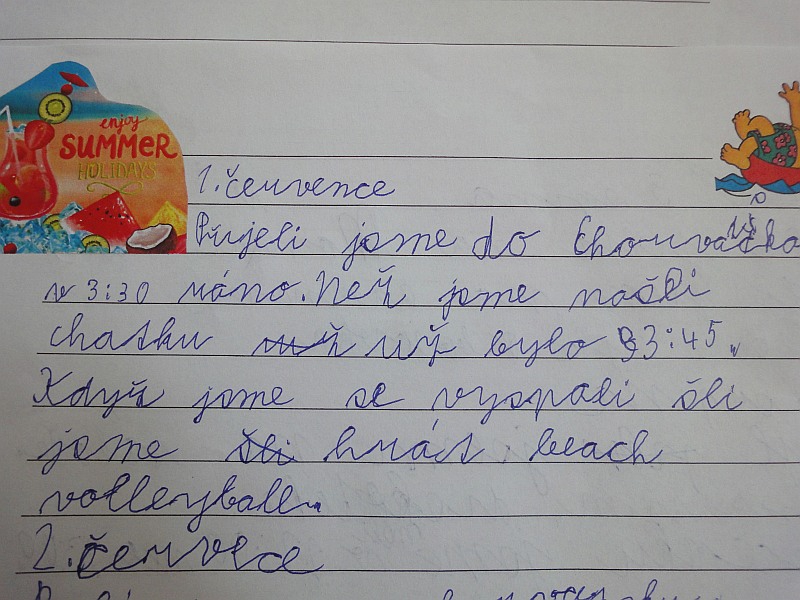 enjoy
SUMMER
HOLIDAYS
1. července
Přijeli jsme do Chorvatska
v 3:30 ráno. Než jsme našli
chatku už bylo 3:45.
Když jsme se vyspali šli
jsme šli hrát beach
volleyball.
2. červece